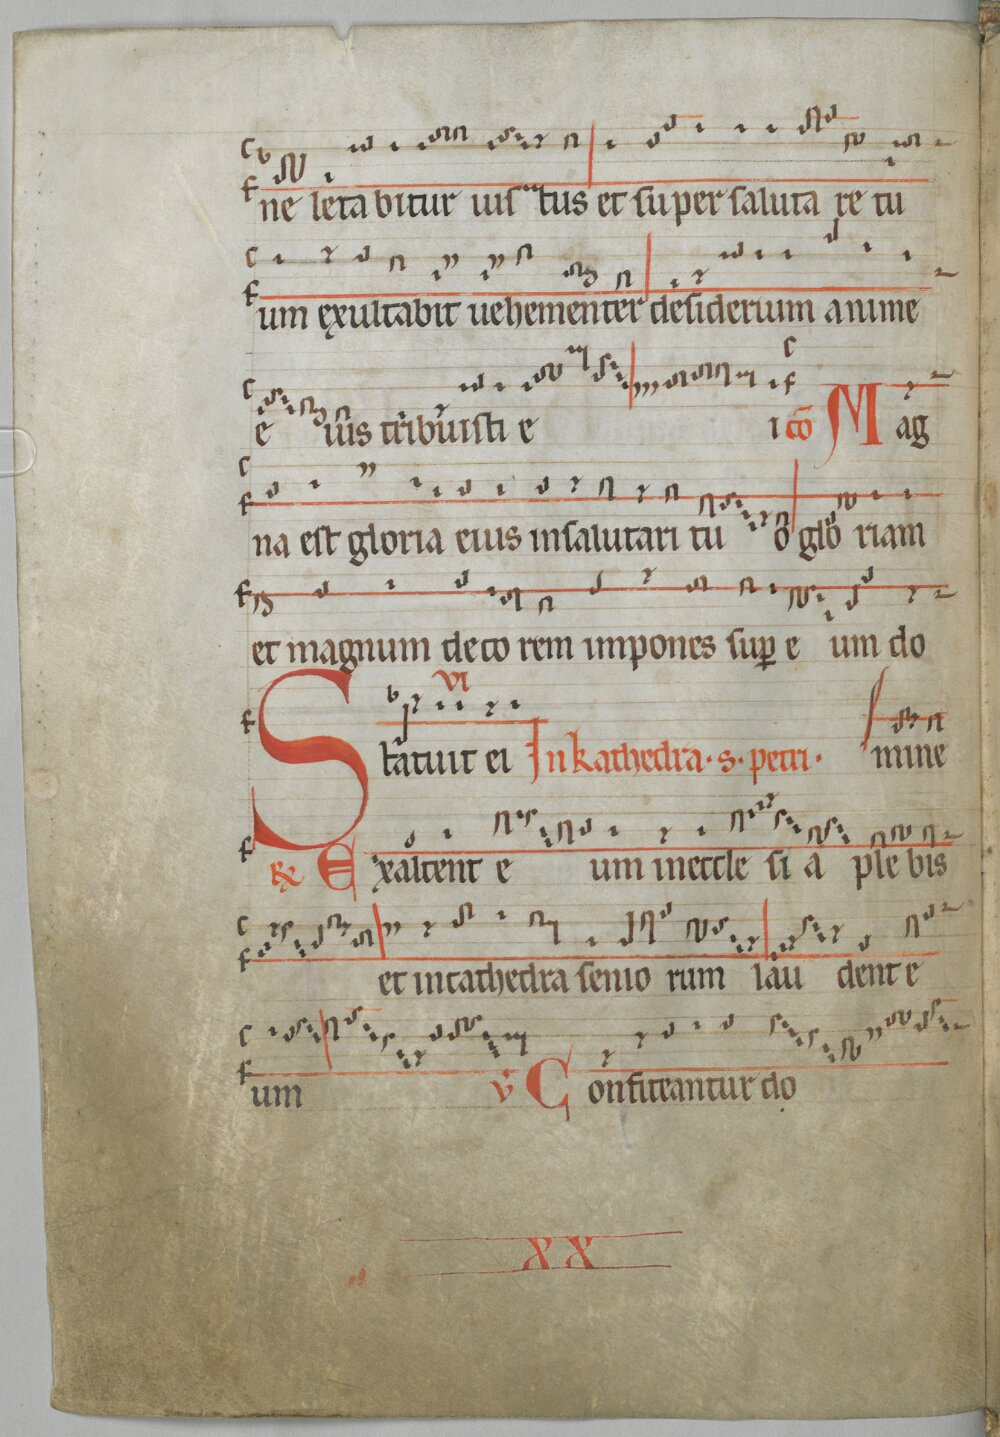 ne letabitur iustus et super saluta re tu
um exultabit uehementer desiderium anime
e ius tribuisti e i co Mag
na est gloria eius insalutari tu o glo riam
et magnum deco rem impones sup e um do
VI
Statuit ei In kathedra · s · petri · mine
℟ Exaltent e um ineccle si a ple bis
et incathedra senio rum lau dent e
um ℣ Confiteantur do
XX